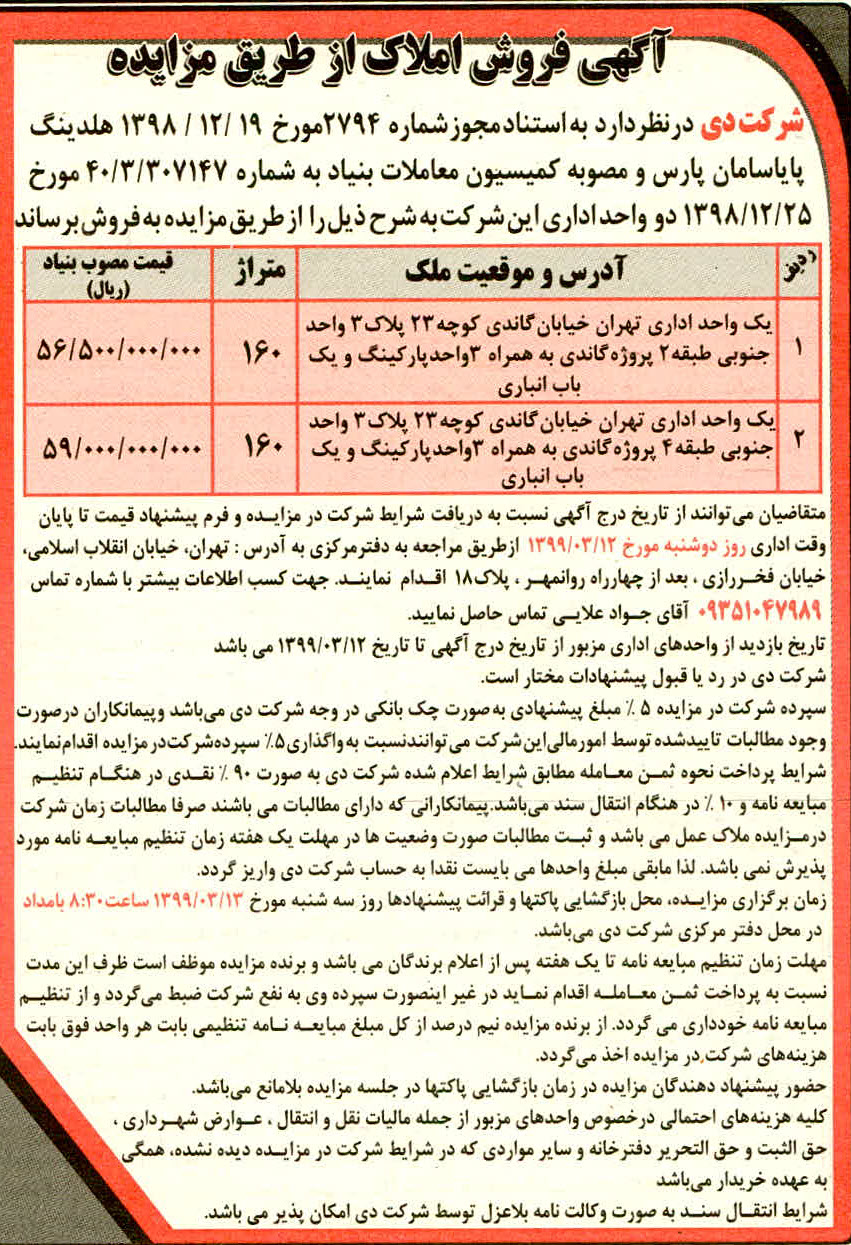 آگهی فروش املاک از طریق مزایده
شرکت دی در نظر دارد به استناد مجوز شماره ۲۷۹۴ مورخ ۱۹ /۱۲ / ۱۳۹۸ هلدینگ
پایاسامان پارس و مصوبه کمیسیون معاملات بنیاد به شماره ۴۰/۳/۳۰۷۱۴۷ مورخ
۱۳۹۸/۱۲/۲۵ دو واحد اداری این شرکت به شرح ذیل را از طریق مزایده به فروش برساند
ردیف آدرس و موقعیت ملک متراژ قیمت مصوب بنیاد
(ریال)
یک واحد اداری تهران خیابان گاندی کوچه ۲۳ پلاک ۳ واحد
۱ جنوبی طبقه ۲ پروژه گاندی به همراه ۳واحد پارکینگ و یک ۱۶۰ ۵۶/۵۰۰/۰۰۰/۰۰۰
باب انباری
یک واحد اداری تهران خیابان گاندی کوچه ۲۳ پلاک ۳ واحد
۲ جنوبی طبقه ۴ پروژه گاندی به همراه ۳واحد پارکینگ و یک ۱۶۰ ۵۹/۰۰۰/۰۰۰/۰۰۰
باب انباری
متقاضیان می توانند از تاریخ درج آگهی نسبت به دریافت شرایط شرکت در مزایده و فرم پیشنهاد قیمت تا پایان
وقت اداری روز دوشنبه مورخ ۱۳۹۹/۰۳/۱۲ ازطریق مراجعه به دفترمرکزی به آدرس : تهران، خیابان انقلاب اسلامی،
خیابان فخررازی ، بعد از چهارراه روانمهر ، پلاک۱۸ اقدام نمایند. جهت کسب اطلاعات بیشتر با شماره تماس
۰۹۳۵۱۰۴۷۹۸۹ آقای جواد علایی تماس حاصل نمایید.
تاریخ بازدید از واحدهای اداری مزبور از تاریخ درج آگهی تا تاریخ ۱۳۹۹/۰۳/۱۲ می باشد
شرکت دی در رد یا قبول پیشنهادات مختار است.
سپرده شرکت در مزایده ۵ ٪ مبلغ پیشنهادی به صورت چک بانکی در وجه شرکت دی می‌باشد و پیمانکاران درصورت
وجود مطالبات تاییدشده توسط امورمالی این شرکت می توانند نسبت به واگذاری ۵٪ سپرده شرکت در مزایده اقدام نمایند.
شرایط پرداخت نحوه ثمن معامله مطابق شرایط اعلام شده شرکت دی به صورت ۹۰ ٪ نقدی در هنگام تنظیم
مبایعه نامه و ۱۰ ٪ در هنگام انتقال سند می‌باشد.پیمانکارانی که دارای مطالبات می باشند صرفا مطالبات زمان شرکت
درمزایده ملاک عمل می باشد و ثبت مطالبات صورت وضعیت ها در مهلت یک هفته زمان تنظیم مبایعه نامه مورد
پذیرش نمی باشد. لذا مابقی مبلغ واحدها می بایست نقدا به حساب شرکت دی واریز گردد.
زمان برگزاری مزایده، محل بازگشایی پاکتها و قرائت پیشنهادها روز سه شنبه مورخ ۱۳۹۹/۰۳/۱۳ ساعت ۸:۳۰ بامداد
در محل دفتر مرکزی شرکت دی می‌باشد.
مهلت زمان تنظیم مبایعه نامه تا یک هفته پس از اعلام برندگان می باشد و برنده مزایده موظف است ظرف این مدت
نسبت به پرداخت ثمن معامله اقدام نماید در غیر اینصورت سپرده وی به نفع شرکت ضبط می‌گردد و از تنظیم
مبایعه نامه خودداری می گردد. از برنده مزایده نیم درصد از کل مبلغ مبایعه نامه تنظیمی بابت هر واحد فوق بابت
هزینه‌های شرکت در مزایده اخذ می‌گردد.
حضور پیشنهاد دهندگان مزایده در زمان بازگشایی پاکتها در جلسه مزایده بلامانع می‌باشد.
کلیه هزینه‌های احتمالی درخصوص واحدهای مزبور از جمله مالیات نقل و انتقال ، عوارض شهرداری ،
حق الثبت و حق التحریر دفترخانه و سایر مواردی که در شرایط شرکت در مزایده دیده نشده، همگی
به عهده خریدار می‌باشد
شرایط انتقال سند به صورت وکالت نامه بلاعزل توسط شرکت دی امکان پذیر می باشد.